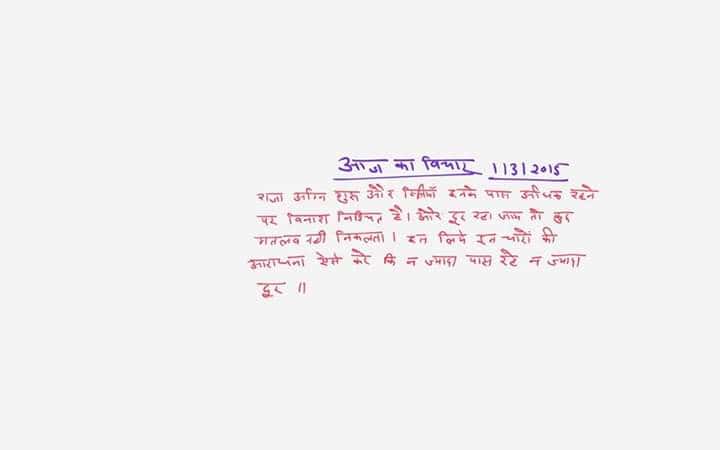 आज का विचार 1/3/2015
राजा अग्नि गुरु और स्त्रियाँ इनके पास अधिक रहने
पर विनाश निश्चित है। और दूर रहा जाय तो कुछ
मतलब नही निकलता। इस लिये इन चारों की
आराधना ऐसे करे कि न ज्यादा पास रहे न ज्यादा
दूर ॥